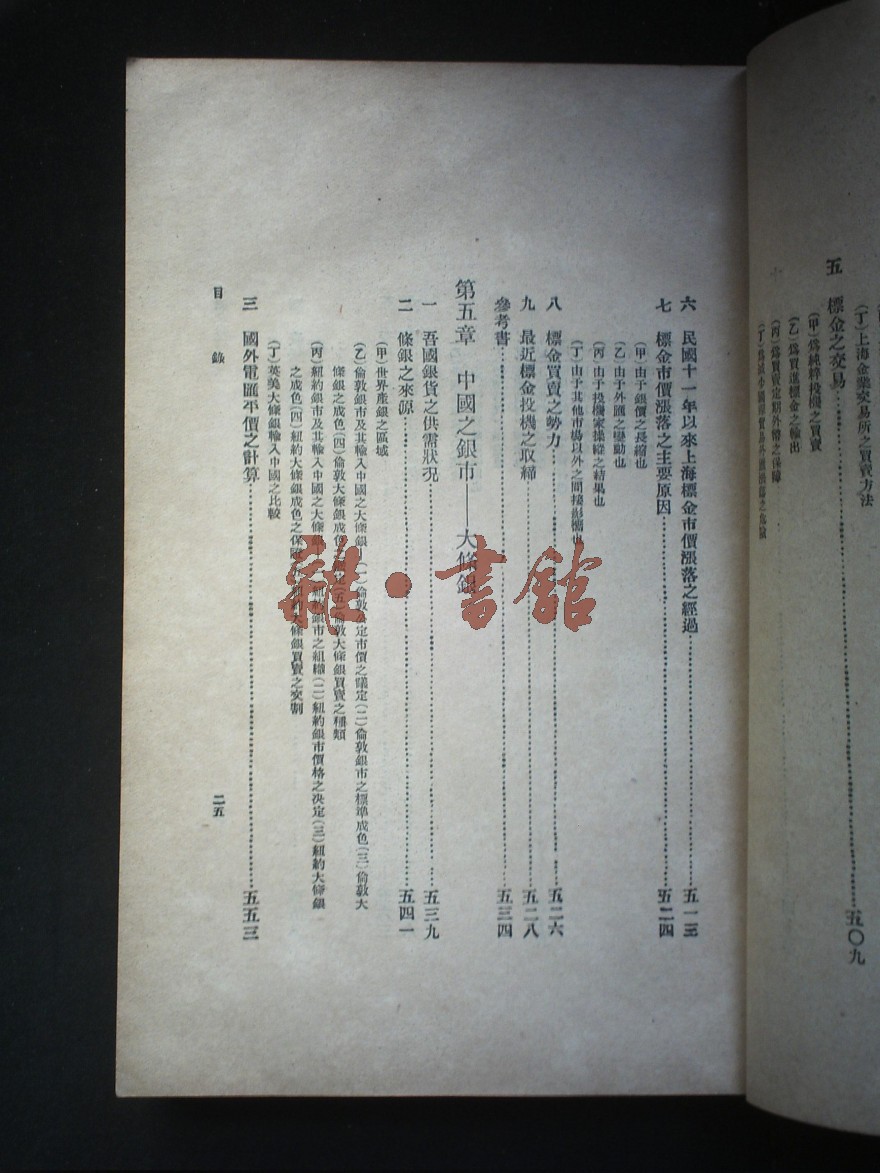 (丁)上海金業交易所之買賣方法
五　標金之交易……五〇九
(甲)爲純粹投機之買賣
(乙)爲買進標金之輸出
(丙)爲買賣定期外幣之保障
六　民國十一年以來上海標金市價漲落之經過……五一三
七　標金市價漲落之主要原因……五二四
(甲)由于銀價之長縮也
(乙)由于外匯之變動也
(丙)由于投機家操縱之結果也
(丁)由于其他市場以外之間接影響也
八　標金買賣之勢力……五二六
九　最近標金投機之取締……五二八
參考書……五三四
第五章　中國之銀市——大條銀
一　吾國銀貨之供需狀況……五三九
二　條銀之來源……五四一
(甲)世界產銀之區域
(乙)倫敦銀市及其輸入中國之大條銀(一)倫敦定市價之議定(二)倫敦銀市之標準成色(三)倫敦大
條銀之成色(四)倫敦大條銀成色之 定(五)倫敦大條銀買賣之種類
(丙)紐約銀市及其輸入中國之大條銀(一)紐約銀市之組織(二)紐約銀市價格之决定(三)紐約大條銀
之成色(四)紐約大條銀成色之保障(五)紐約大條銀買賣之交割
(丁)英美大條銀輸入中國之比較
三　國外電匯平價之計算……五五三
目　錄
二五
雜·書館